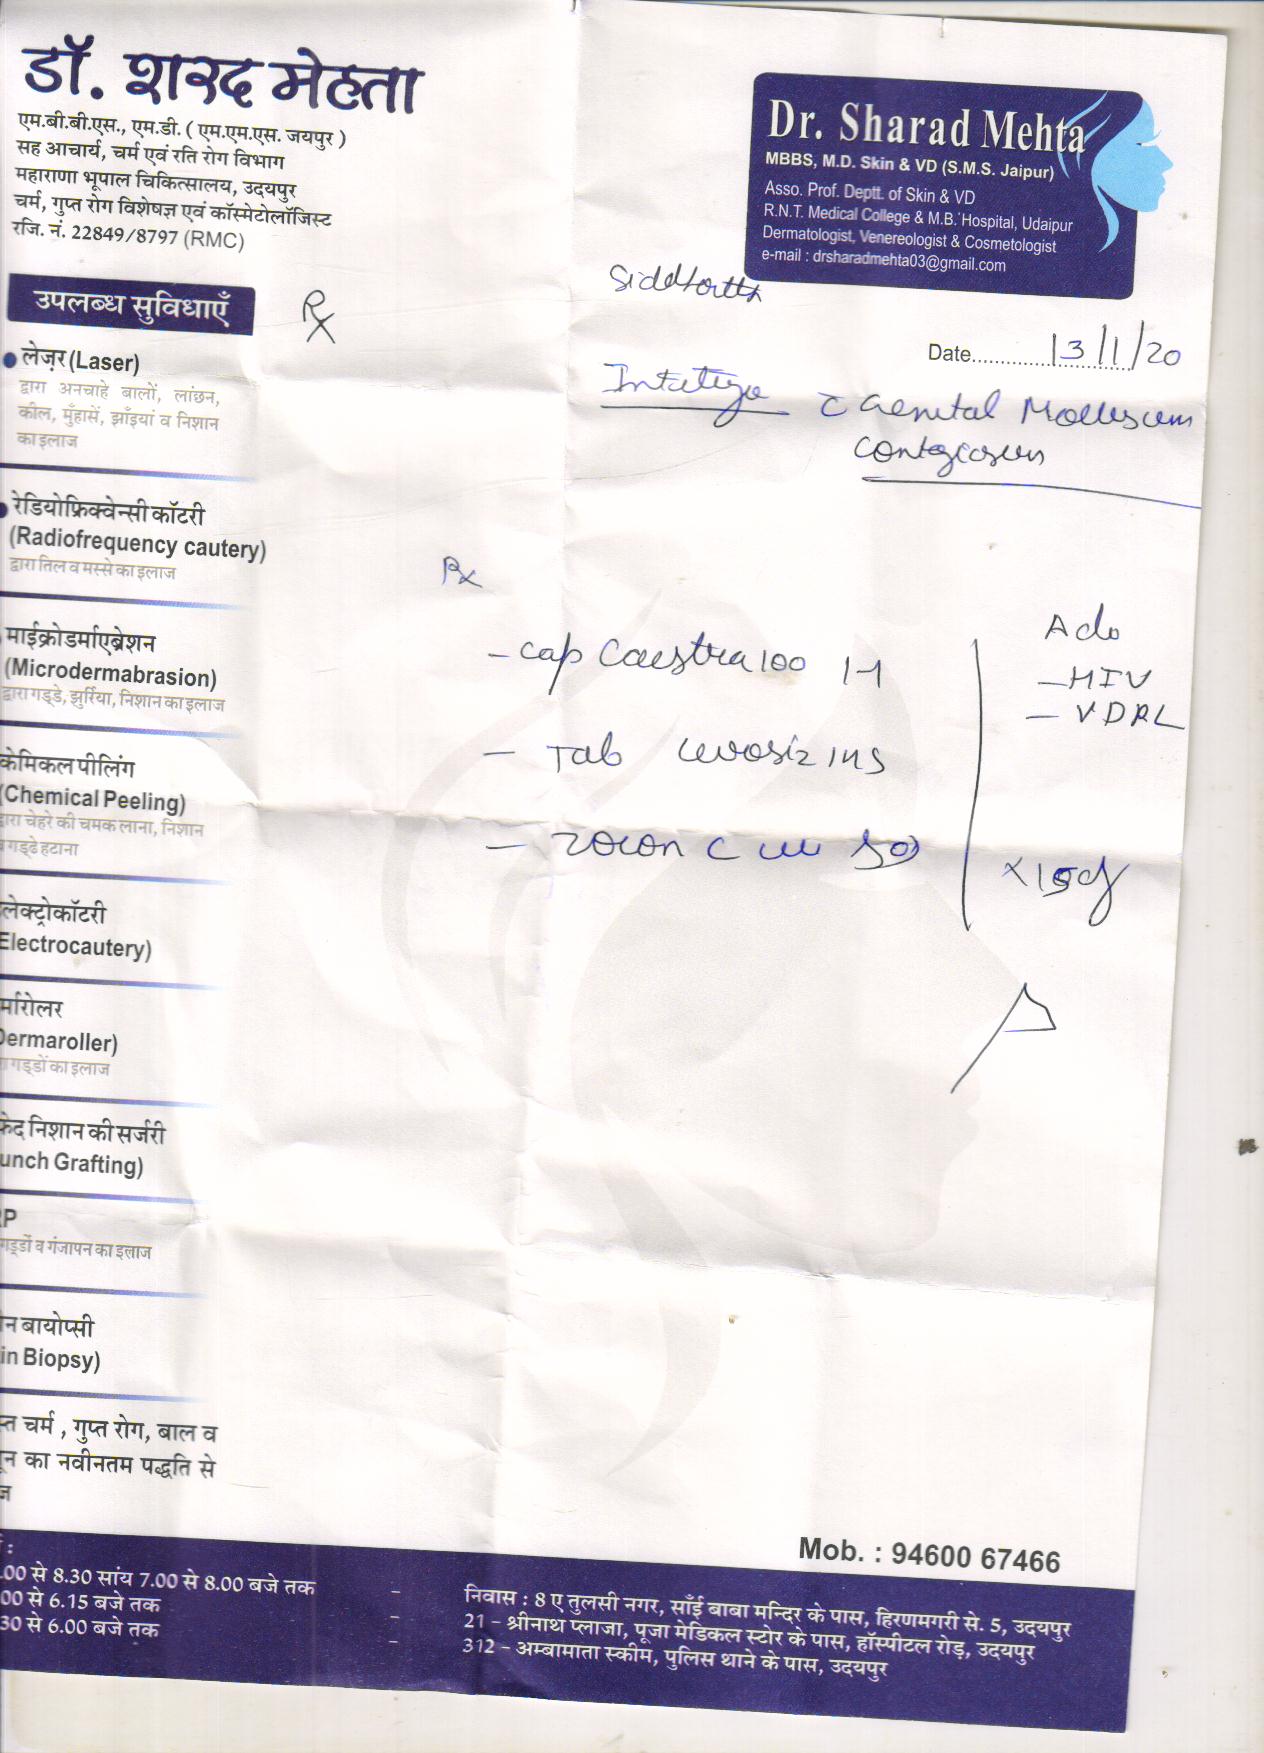 डॉ. शरद मेहता
एम.बी.बी.एस., एम.डी. ( एम.एम.एस. जयपुर )
सह आचार्य, चर्म एवं रति रोग विभाग
महाराणा भूपाल चिकित्सालय, उदयपुर
चर्म, गुप्त रोग विशेषज्ञ एवं कॉस्मेटोलॉजिस्ट
रजि. नं. 22849/8797 (RMC)
Dr. Sharad Mehta
MBBS, M.D. Skin & VD (S.M.S. Jaipur)
Asso. Prof. Deptt. of Skin & VD
R.N.T. Medical College & M.B. Hospital, Udaipur
Dermatologist, Venereologist & Cosmetologist
e-mail : drsharadmehta03@gmail.com
Siddharth
Date 13/1/20
Rx
Genital Molluscum
Contagiosum
Rx
- Cap 100 1-1
- Tab
- Zocon
Adv
- HIV
- VDRL
उपलब्ध सुविधाएँ
लेज़र (Laser)
द्वारा अनचाहे बालों, लांछन,
कील, मुँहासें, झाँइयां व निशान
का इलाज
रेडियोफ्रिक्वेन्सी कॉटरी
(Radiofrequency cautery)
द्वारा तिल व मस्से का इलाज
माईक्रोडर्माएब्रेशन
(Microdermabrasion)
द्वारा गड्डे, झुर्रिया, निशान का इलाज
केमिकल पीलिंग
(Chemical Peeling)
द्वारा चेहरे की चमक लाना, निशान
व गड्ढे हटाना
लेक्ट्रोकॉटरी
Electrocautery)
र्मारोलर
Dermaroller)
गड्डों का इलाज
फेद निशान की सर्जरी
unch Grafting)
RP
गड्डों व गंजापन का इलाज
न बायोप्सी
in Biopsy)
स्त चर्म , गुप्त रोग, बाल व
का नवीनतम पद्धति से
ज
Mob. : 94600 67466
.00 से 8.30 सांय 7.00 से 8.00 बजे तक - निवास : 8 ए तुलसी नगर, साँई बाबा मन्दिर के पास, हिरणमगरी से. 5, उदयपुर
00 से 6.15 बजे तक - 21 - श्रीनाथ प्लाजा, पूजा मेडिकल स्टोर के पास, हॉस्पीटल रोड़, उदयपुर
30 से 6.00 बजे तक - 312 - अम्बामाता स्कीम, पुलिस थाने के पास, उदयपुर